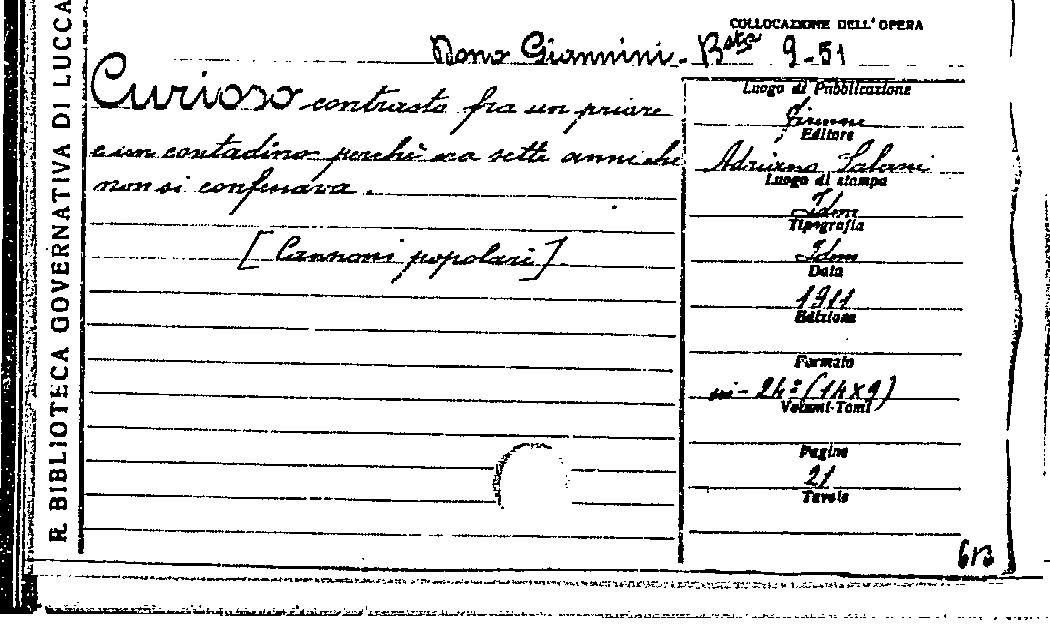 R. BIBLIOTECA GOVERNATIVA DI LUCCA
COLLOCAZIONE DELL'OPERA
Dono Giannini - Bsta 9-51
Curioso contrasto fra un priore
e un contadino perchè era sette anni che
non si confessava.
[Canzoni popolari]
Luogo di Pubblicazione
Firenze
Editore
Adriano Salani
Luogo di stampa
Idem
Tipografia
Idem
Data
1911
Edizione
Formato
in-24º (14x9)
Volumi-Tomi
Pagine
21
Tavole